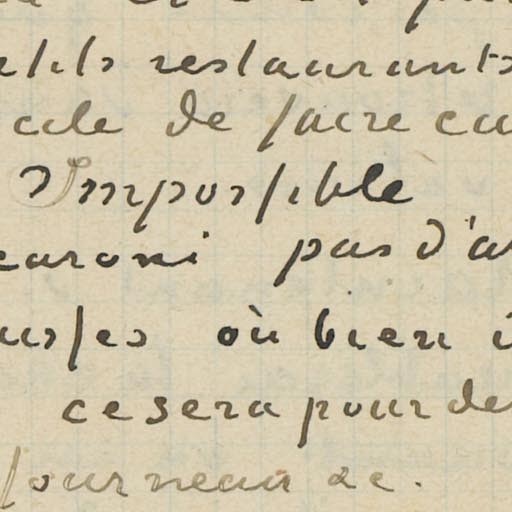 etits restaurants
cile de faire cu
Impossible
caroni pas d'a
usses où bien i
ce sera pour de
fourneau &c.